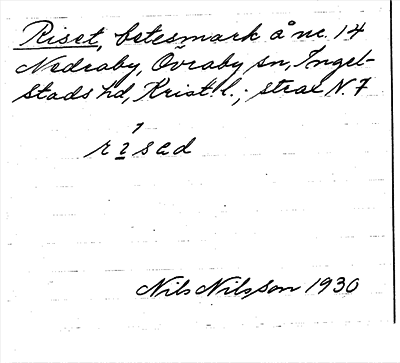 Riset, betesmark å nr. 14
Nedraby, Övraby sn, Ingel-
stads hd, Krist. l.; strax N. 7
risad
Nils Nilsson 1930